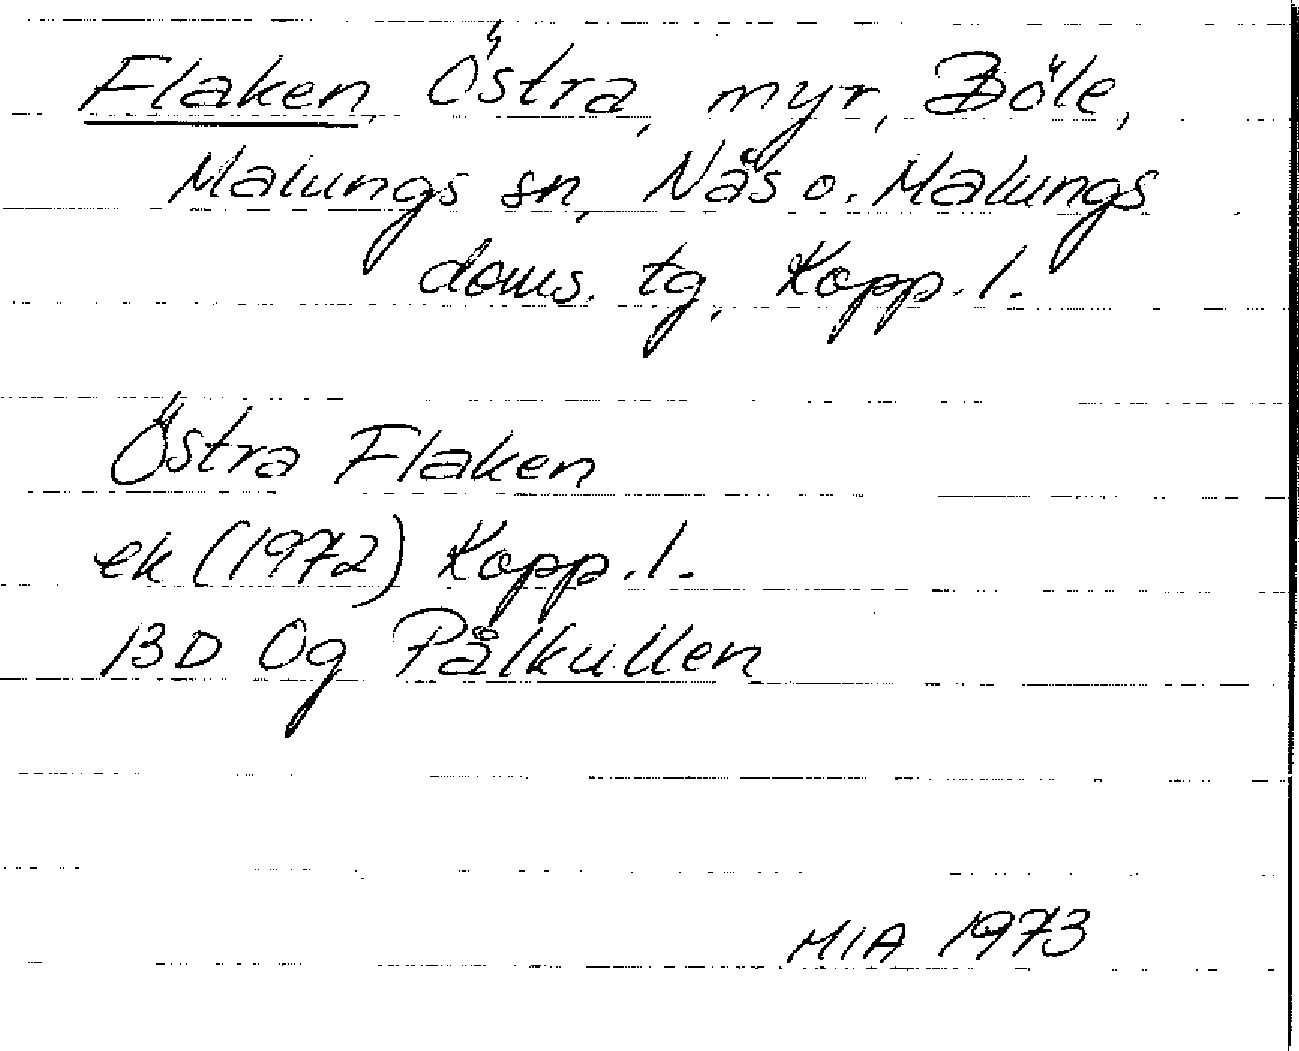 Flaken, Östra, myr, Böle,
Malungs sn, Nås o. Malungs
doms. tg, Kopp. l.
Östra Flaken
ek (1972) Kopp. l.
13D Og Pålkullen
MIA 1973